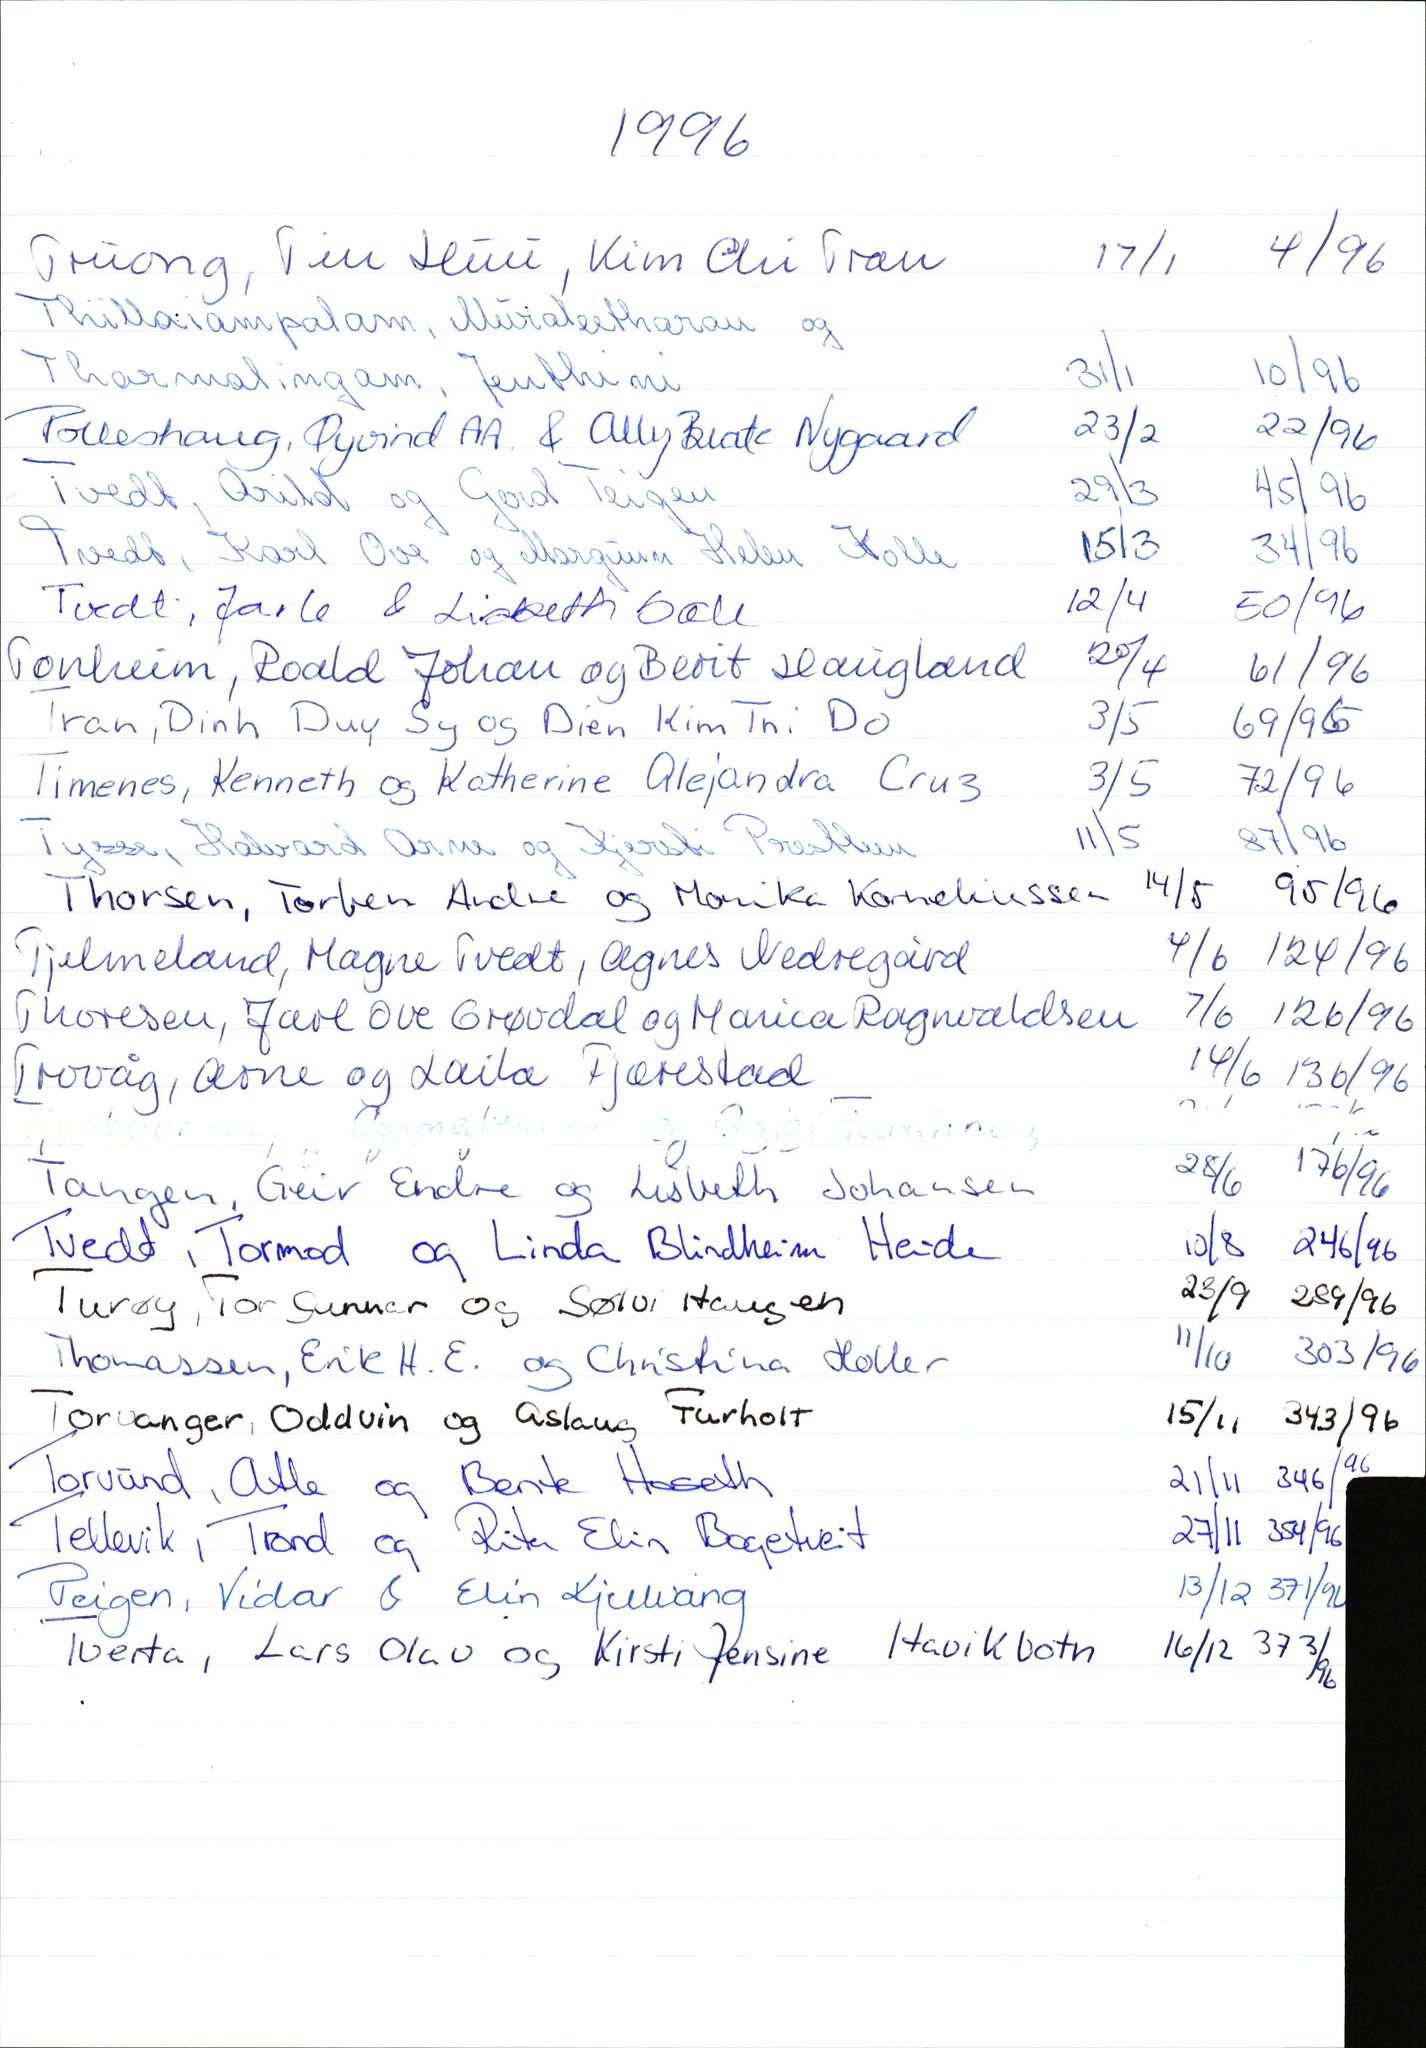 1996
Truong, Tin Huu, Kim Chi Tran 17/1 4/96
Thillaiampalam, Muraleetharan og
Tharmalingam, Jenthini 31/1 10/96
Tolleshaug, Øyvind AA. & Ally Beate Nygaard 23/2 22/96
Tvedt, Arild og Gerd Teigen 29/3 45/96
Tvedt, Karl Ove og Margunn Helen Kolle 15/3 34/96
Tvedt, Jarle & Lisbeth 12/4 50/96
Tonheim, Roald Johan og Berit Haugland 20/4 61/96
Tran, Dinh Duy Sy og Dien Kim Thi Do 3/5 69/96
Timenes, Kenneth og Katherine Alejandra Cruz 3/5 72/96
Tysse, Halvard Arne og Kjersti 11/5 87/96
Thorsen, Torben Andre og Monika Korneliussen 14/5 95/96
Tjelmeland, Magne Tvedt, Agnes Nedregård 4/6 124/96
Thoresen, Jarl Ove Grøvdal og Marica Ragnvaldsen 7/6 126/96
Trovåg, Arne og Laila Fjærestad 14/6 136/96
og
Tangen, Geir Endre og Lisbeth Johansen 28/6 176/96
Tvedt, Tormod og Linda Blindheim Heide 10/8 246/96
Turøy, Tor Gunnar og Sølvi Haugen 23/9 289/96
Thomassen, Erik H. E. og Christina Holler 11/10 303/96
Torvanger, Oddvin og Aslaug Furholt 15/11 343/96
Torvund, Atle og Bente Hoseth 21/11 346/96
Tellevik, Trond og Rita Elin Bogetveit 27/11 354/96
Teigen, Vidar & Elin Kjellvang 13/12 371/96
Tverta, Lars Olav og Kirsti Jensine Havikbotn 16/12 373/96